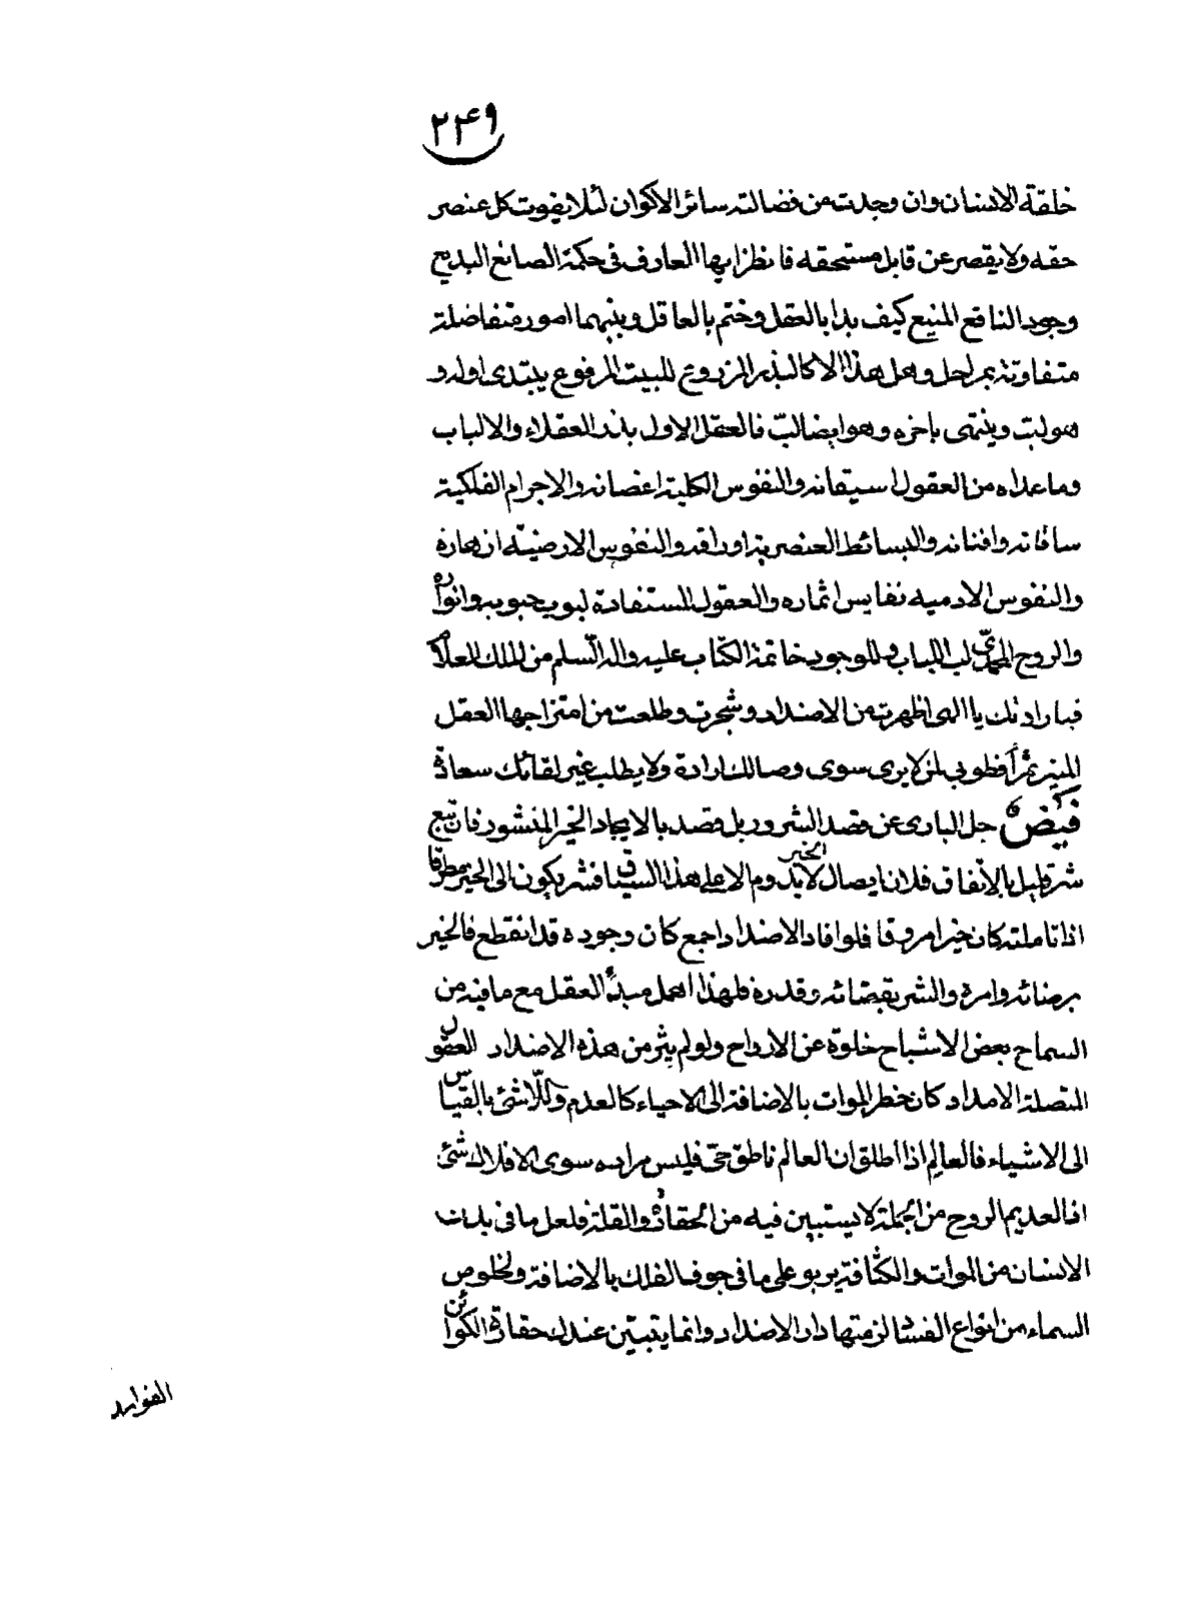 ٢٤٩
خلقة الانسان وان وجدت من فضالته سائر الاكوان لئلا يفوت كل عنصر
حقه ولا يقصر عن قابل مستحقه فانظر ايها العارف فى حكمة الصانع البديع
وجود النافع المنيع كيف بدا بالعقل وختم بالعاقل وبينهما امور متفاضلة
متفاوتة بمراحل وهل هذا الا كالبذر المزروع للبيت المرفوع يبتدى اوله و
هو لب وينتهى باخره وهو ايضا لب فالعقل الاول بذر العقلاء والالباب
وما عداه من العقول اسيقانه والنفوس الكلية اغصانه والاجرام الفلكية
ساقاته وافنانه والبسائط العنصرية اوراقه والنفوس الارضية ازهاره
والنفوس الادميه نفايس اثماره والعقول المستفادة لبوب حبوبه وانواره
والروح المحمدى لب اللباب وللوجود خاتمة الكتاب عليه واله السلم من الملك العلام
فبارادتك يا الهى اظهرت من الاضداد وشجرت وطلعت من امتزاجها العقل
المنير ثمرا فطوبى لمن لا يرى سوى وصالك ارادة ولا يطلب غير لقائك سعادة
فيض جل البارى عن قصد الشرور بل قصد بالايجاد الخير المنشور فان تبع
شر قليل بالاتفاق فلان ايصال الخير لا يدوم الا على هذا السياق فشر يكون الى الخير مطرقا
اذا تاملته كان خيرا مروقا فلو افاد الاضداد اجمع كان وجوده قد انقطع فالخير
برضائه وامره والشر بقضائه وقدره فلهذا اهمل مبدأ العقل مع ما فيه من
السماح بعض الاشباح خلوة عن الارواح ولو لم يثر من هذه الاضداد العقول
المتصلة الامداد كان خطر الموات بالاضافة الى الاحياء كالعدم واللاشئ بالقياس
الى الاشياء فالعالم اذا اطلق ان العالم ناطق حى فليس مراده سوى الافلاك شئ
اذ العديم الروح من الجملة لا يستبين فيه من الحقارة والقلة فلعل ما فى بدن
الانسان من الموات والكثافة يربو على ما فى جوف الفلك بالاضافة ولخلوص
السماء من انواع الفساد لزمتها دار الاضداد وانما يتبين عندك حقارة الكوائن